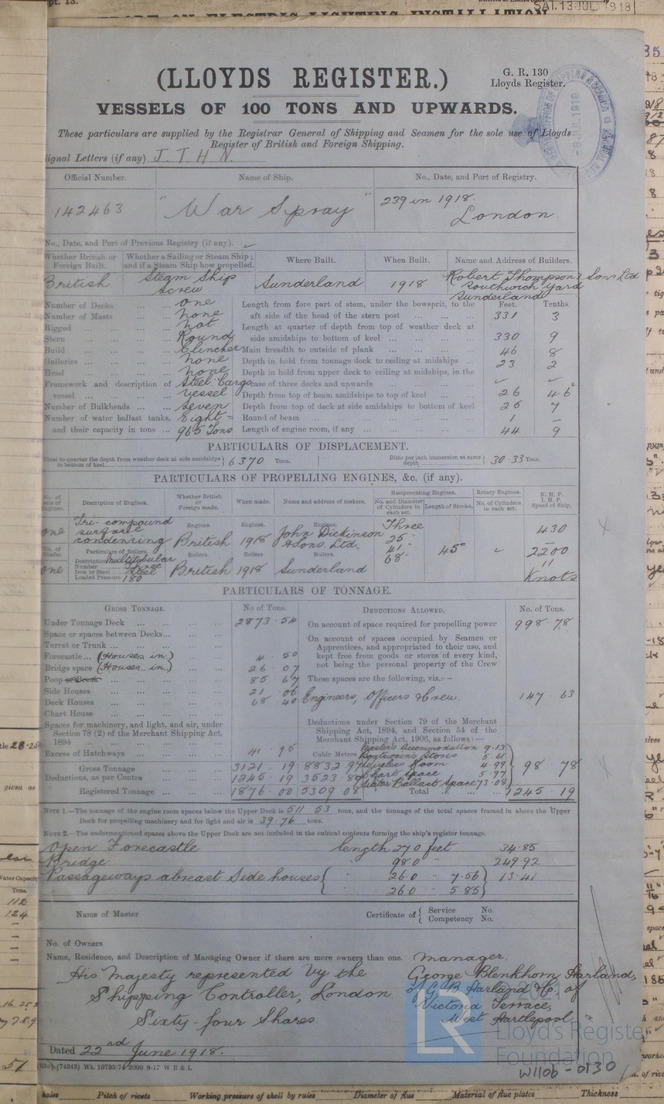 SAT. 13 JUL 1918
(LLOYDS REGISTER.)
G. R. 130
Lloyds Register.
VESSELS OF 100 TONS AND UPWARDS.
These particulars are supplied by the Registrar General of Shipping and Seamen for the sole use of Lloyds
Register of British and Foreign Shipping.
ignal Letters (if any) J. T. H. N.
Official Number. Name of Ship. No., Date, and Port of Registry.
142463 "War Spray" 239 in 1918. London
No., Date, and Port of Previous Registry (if any).
Whether British or Foreign Built. Whether a Sailing or Steam Ship; and if a Steam Ship how propelled. Where Built. When Built. Name and Address of Builders.
British Steam Ship Screw Sunderland 1918 Robert Thompson & Sons Ltd Southwick Yard Sunderland
Feet. Tenths.
Number of Decks one Length from fore part of stem, under the bowsprit, to the
Number of Masts none aft side of the head of the stern post 331 3
Rigged not Length at quarter of depth from top of weather deck at
Stern Round side amidships to bottom of keel 330 9
Build Clencher Main breadth to outside of plank 46 8
Galleries none Depth in hold from tonnage deck to ceiling at midships 23 2
Head none Depth in hold from upper deck to ceiling at midships, in the
Framework and description of Steel Cargo case of three decks and upwards
vessel vessel Depth from top of beam amidships to top of keel 26
Number of Bulkheads seven Depth from top of deck at side amidships to bottom of keel 7
Number of water ballast tanks, Eight Round of beam 1
and their capacity in tons 965 Tons Length of engine room, if any 44 9
PARTICULARS OF DISPLACEMENT.
Total to quarter the depth from weather deck at side amidships to bottom of keel 6370 Tons. Ditto per inch immersion at same depth 30.33 Tons.
PARTICULARS OF PROPELLING ENGINES, &c. (if any).
No. of sets of Engines. Description of Engines. Whether British or Foreign made. When made. Name and address of makers. Reciprocating Engines. No. and Diameter of Cylinders in each set. Length of Stroke. Rotary Engines. No. of Cylinders in each set. N.H.P. I.H.P. Speed of ship.
one Tri-compound surface condensing Engines. British Engines. 1918 Engines. John Dickinson & Sons Ltd. Three 25" 41" 68" 45" 430
Particulars of Boilers. Boilers Boilers Boilers. 2200
one Description Multitubular Number Iron or Steel Steel Loaded Pressure 180 British 1918 Sunderland 11 Knots
PARTICULARS OF TONNAGE.
GROSS TONNAGE. No. of Tons. DEDUCTIONS ALLOWED. No. of Tons.
Under Tonnage Deck 2873.54 On account of space required for propelling power 998.78
Space or spaces between Decks On account of spaces occupied by Seamen or
Turret or Trunk Apprentices, and appropriated to their use, and
Forecastle (Houses in) 4 50 kept free from goods or stores of every kind,
Bridge space (Houses in) 26 07 not being the personal property of the Crew
Poop 85 67 These spaces are the following, viz.:—
Side Houses 21 06 Engineers, Officers & Crew. 147.63
Deck Houses 68 40
Chart House Deductions under Section 79 of the Merchant
Spaces for machinery, and light, and air, under Shipping Act, 1894, and Section 54 of the
Section 78 (2) of the Merchant Shipping Act, 1894 Merchant Shipping Act, 1906, as follows:—
Excess of Hatchways 41.95 Cubic Metres. Master's Accommodation 9.13
Boatswain's Stores 5.81
Gross Tonnage 3121 19 8832 97 Wireless Room 4.99 98 78
Deductions, as per Contra 1245.19 3523.89 Chart Space 5.77
Water Ballast Space 73.08
Registered Tonnage 1876 00 5309 08 Total 1245 19
NOTE 1.—The tonnage of the engine room spaces below the Upper Deck is 511.53 tons, and the tonnage of the total spaces framed in above the Upper
Deck for propelling machinery and for light and air is 39.76 tons.
NOTE 2.—The undermentioned spaces above the Upper Deck are not included in the cubical contents forming the ship's register tonnage.
Open Forecastle length 27.0 feet 34.85
Bridge " 98.0 " 249.92
Passageways abreast Side houses " 26.0 " 7.56 13.41
" 26.0 " 5.85
Name of Master Certificate of Service No. Competency No.
No. of Owners
Name, Residence, and Description of Managing Owner if there are more owners than one. Manager
His Majesty represented by the George Blenkhorn Harland,
Shipping Controller, London of G. B. Harland & Co. of
Sixty-four Shares Victoria Terrace,
West Hartlepool
Dated 22nd June 1918.
Wt. 10730/74 2000 9-17 W B & L
© 2021
LR
Lloyd's Register
Foundation
W1106-0130
Pitch of rivets Working pressure of shell by rules Diameter of flue Material of flue plates Thickness